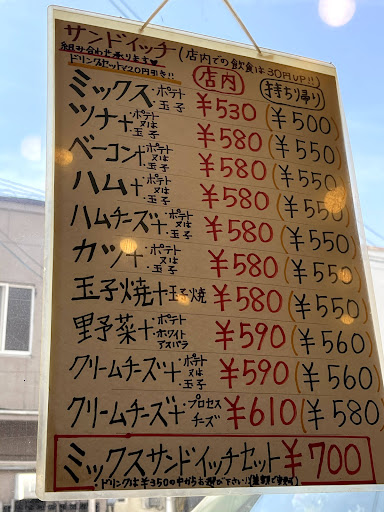 サンドイッチ (店内での飲食は30円UP!!)
組み合わせ承ります♥
ドリンクセットで20円引き!! 店内 (持ち帰り)
ミックス・ポテト・玉子 ¥530 (¥500)
ツナ+・ポテト又は・玉子 ¥580 (¥550)
ベーコン+・ポテト又は・玉子 ¥580 (¥550)
ハム+・ポテト又は・玉子 ¥580 (¥550)
ハムチーズ+・ポテト又は・玉子 ¥580 (¥550)
カツ+・ポテト又は・玉子 ¥580 (¥550)
玉子焼+玉子焼 ¥580 (¥550)
野菜+・ポテト・ホワイトアスパラ ¥590 (¥560)
クリームチーズ+・ポテト又は・玉子 ¥590 (¥560)
クリームチーズ+・プロセスチーズ ¥610 (¥580)
ミックスサンドイッチセット ¥700
ドリンクは¥350の中からお選び下さい